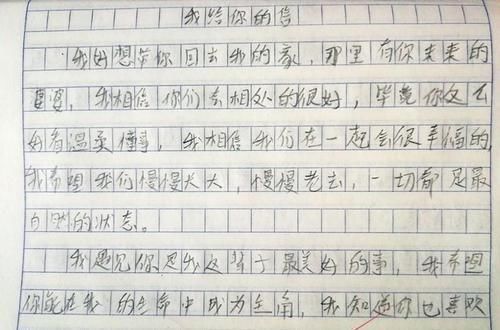 我给你的信
我好想带你回去我的家，那里有你未来的
婆婆，我相信你们会相处的很好，毕竟你这么
好看温柔懂事，我相信我们在一起会很幸福的，
我希望我们慢慢长大，慢慢老去，一切都是最
自然的状态。
我遇见你是我这辈子最美好的事，我希望
你能在我的生命中成为主角，我知道你也喜欢